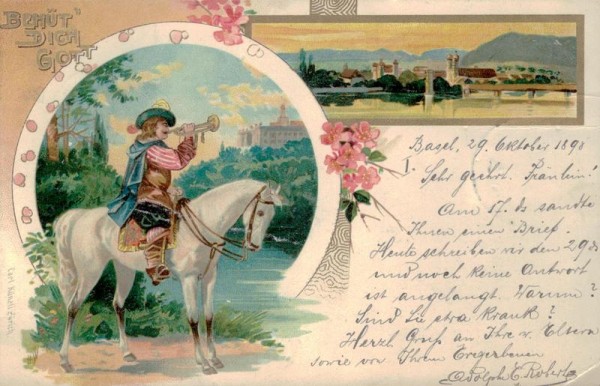 BEHÜT'
DICH
GOTT
Basel, 29. Oktober 1898
Sehr geehrt. Fräulein!
Am 17. ds sandte
Ihnen einen Brief.
Heute schreiben wir den 29. ds
und noch keine Antwort
ist angelangt. Warum?
Sind Sie etwa krank?
Herzl Gruß an Ihre w. Eltern
sowie von Ihrem Ergebenen
Adolph C Roberts